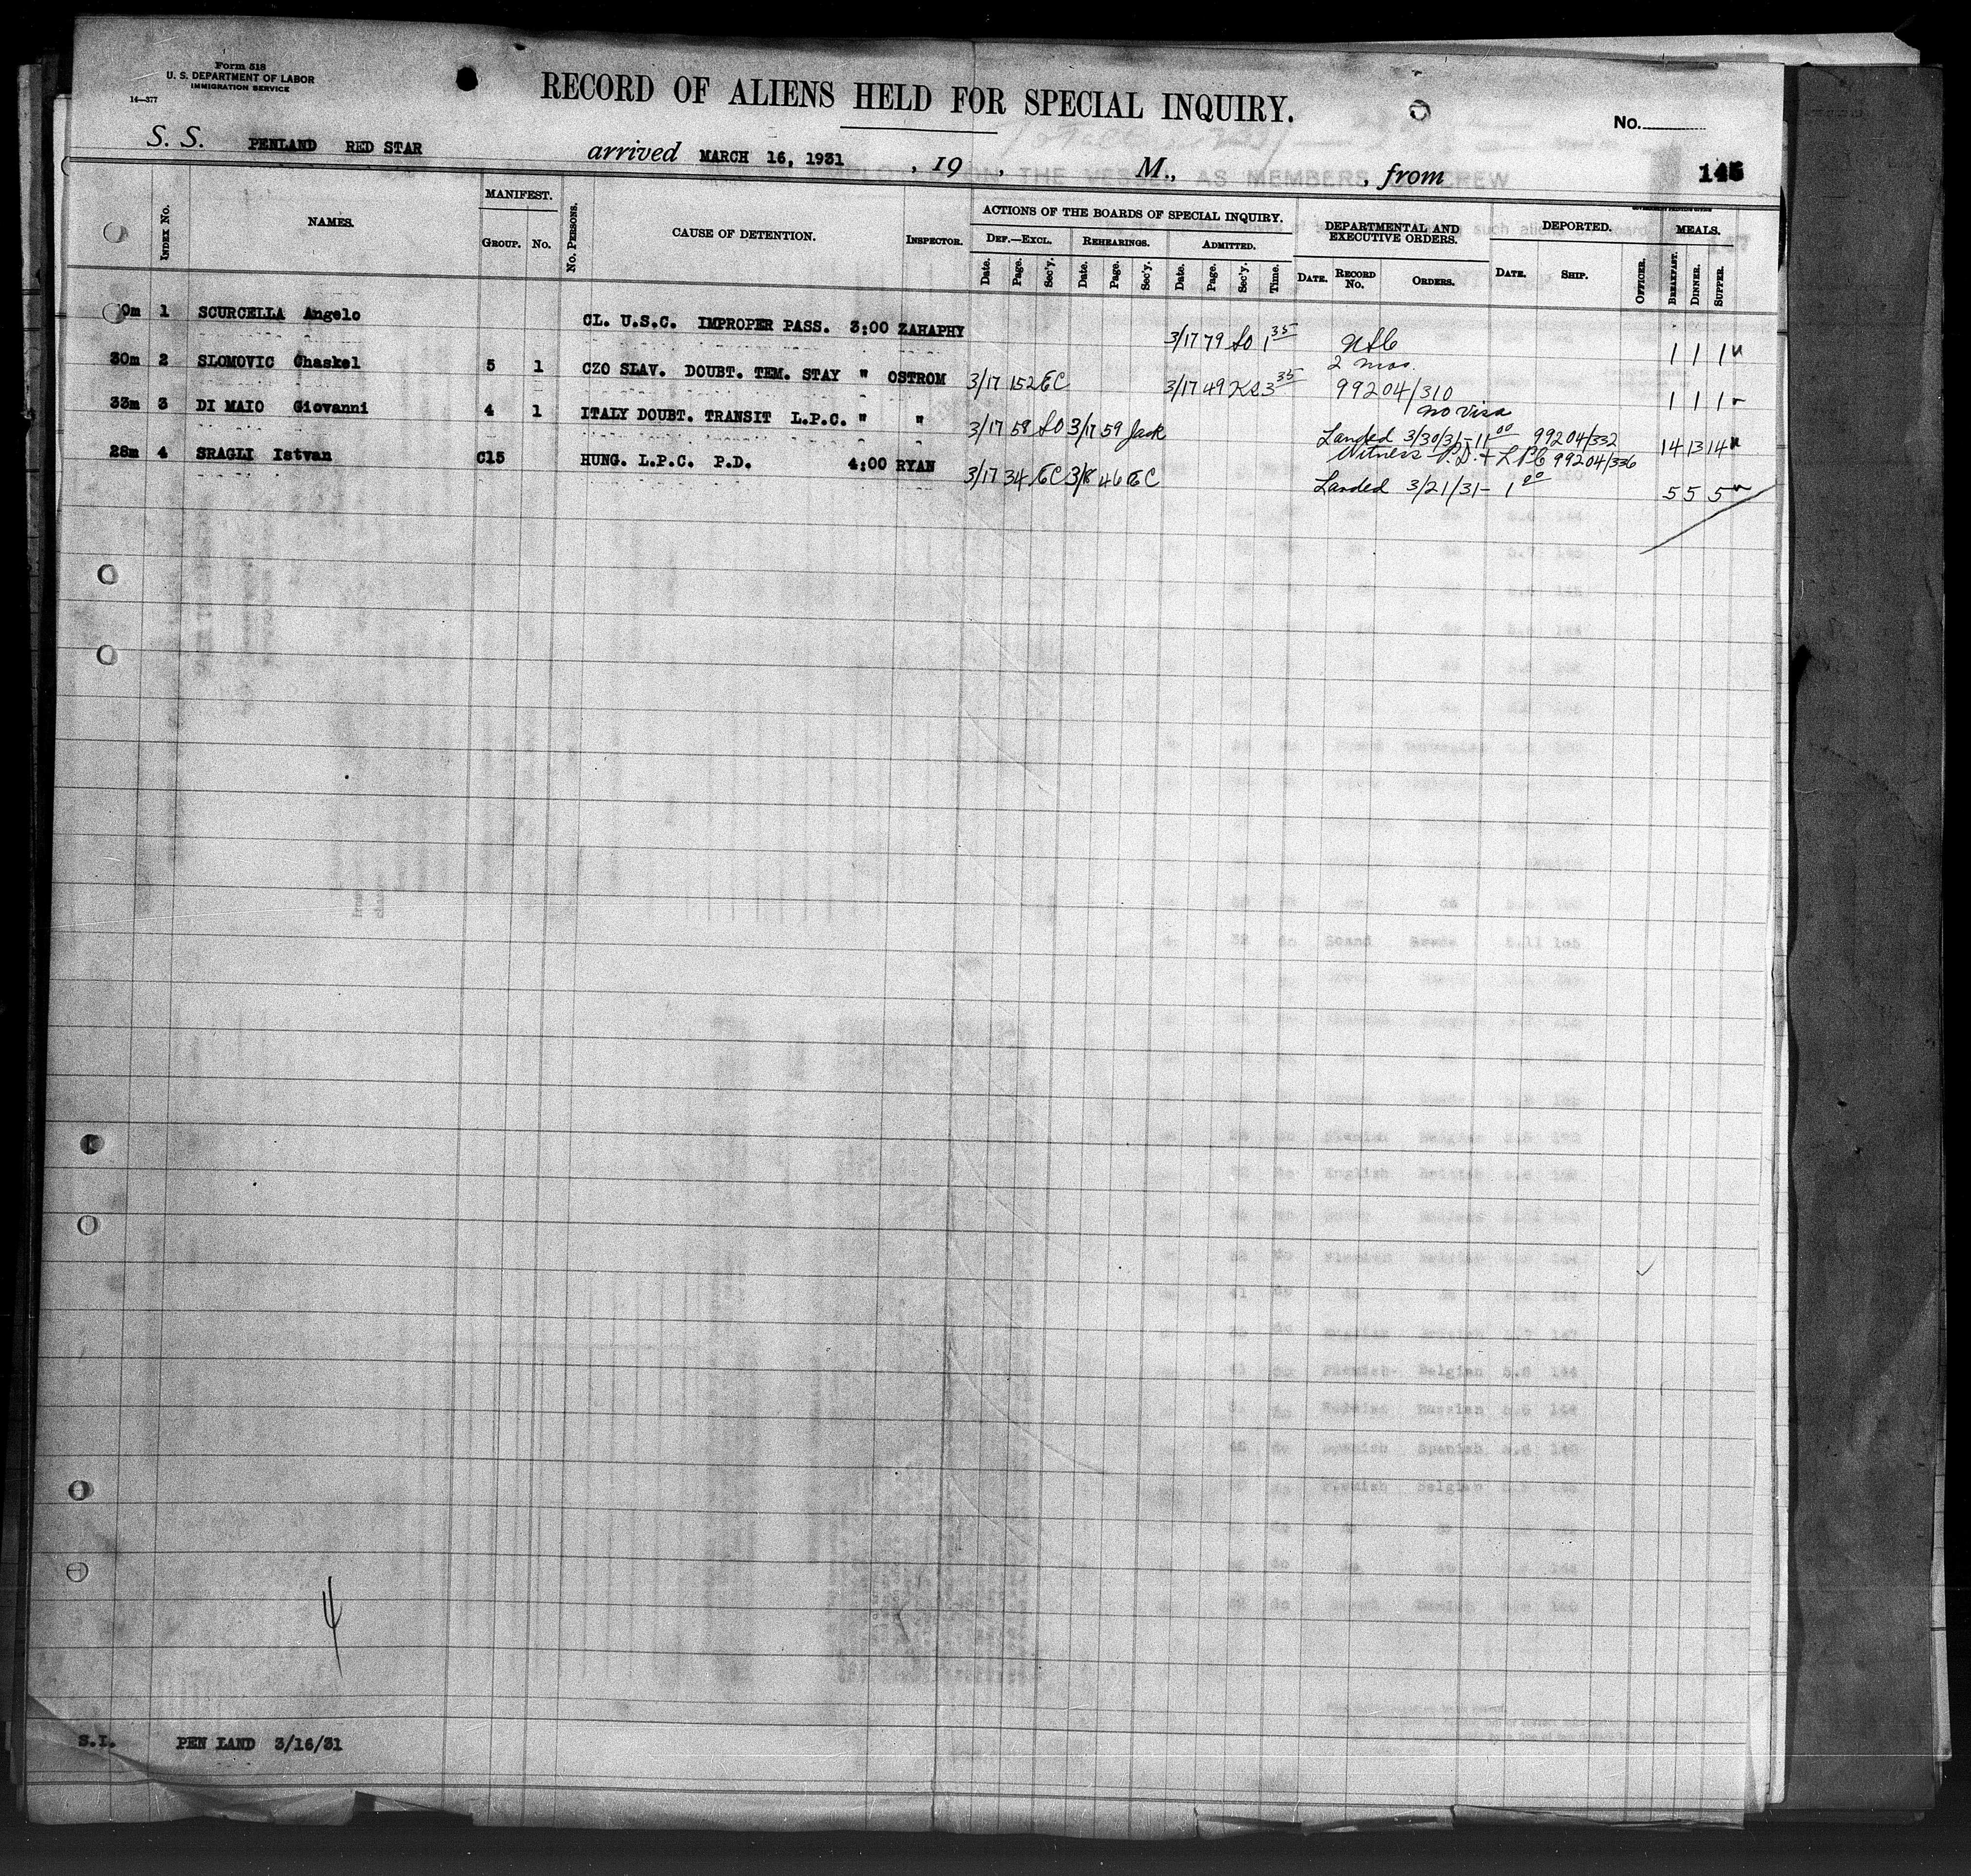 Form 518
U. S. DEPARTMENT OF LABOR
IMMIGRATION SERVICE
14—377
RECORD OF ALIENS HELD FOR SPECIAL INQUIRY.
No.
S. S. PENLAND RED STAR arrived MARCH 16, 1931 , 19 , M., , from 145
EMPLOYED ON THE VESSEL AS MEMBERS OF CREW
INDEX No. NAMES. MANIFEST. GROUP. No. No. PERSONS. CAUSE OF DETENTION. INSPECTOR.
ACTIONS OF THE BOARDS OF SPECIAL INQUIRY. DEPARTMENTAL AND EXECUTIVE ORDERS. DEPORTED. MEALS.
DEF.—EXCL. REHEARINGS. ADMITTED.
Date. Page. Sec'y. Date. Page. Sec'y. Date. Page. Sec'y. Time. DATE. RECORD No. ORDERS. DATE. SHIP. OFFICER. BREAKFAST. DINNER. SUPPER.
0m 1 SCURCELLA Angelo CL. U.S.C. IMPROPER PASS. 3:00 ZAHAPHY 3/17 79 1 35 1 1 1
2 mos.
30m 2 SLOMOVIC Chaskel 5 1 CZO SLAV. DOUBT. TEM. STAY " OSTROM 3/17 152 EC 3/17 49 3 35 99204/310 1 1 1
no visa
33m 3 DI MAIO Giovanni 4 1 ITALY DOUBT. TRANSIT L.P.C. " " 3/17 58 3/17 59 Jack Landed 3/30/31 - 11 00 99204/332 14 13 14
Witness P.D. + LPC 99204/336
28m 4 SRAGLI Istvan C15 HUNG. L.P.C. P.D. 4:00 RYAN 3/17 34 EC 3/8 46 EC Landed 3/21/31 - 1 00 5 5 5
4
S.I. PEN LAND 3/16/31